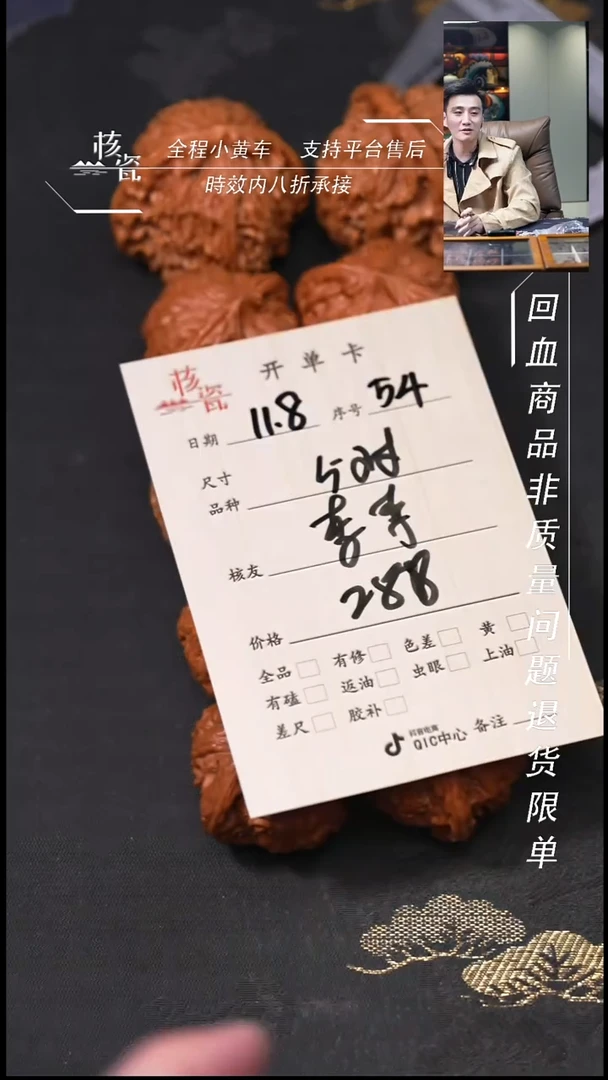 核瓷
全程小黄车 支持平台售后
時效内八折承接
回血商品非质量问题退货限单
核瓷 开单卡
日期 11.8 序号 54
尺寸
品种
核友
价格 288
全品 有修 色差 黄
有磕 返油 虫眼 上油
差尺 胶补
抖音电商
QIC中心 备注